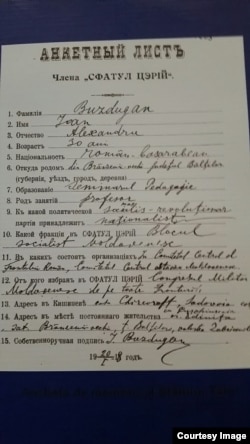 АНКЕТНЫЙ ЛИСТЪ
Члена „СФАТУЛ ЦЭРІЙ“.
1. Фамилія Buzdugan
2. Имя Ioan
3. Отчество Alexandru
4. Возрастъ 30 ani
5. Національность Român basarabean
6. Откуда родомъ din Brânzenii vechi județul Balților
(губернія, уѣздъ, городъ, деревня)
7. Образованіе Seminarul Pedagogic
8. Родъ занятій profesor
9. Къ какой политической socialist-revoluționar
партіи принадлежитъ naționalist
10. Какой фракціи въ СФАТУЛ ЦЭРІЙ Blocul
socialist moldovenesc
11. Въ какихъ состоитъ организаціяхъ În Comitetul Central al
Comitetul Central
12. Отъ кого избранъ въ СФАТУЛ ЦЭРІЙ Congresul Militar
Moldovenesc de pe toate fronturile
13. Адресъ въ Кишиневѣ
14. Адресъ въ мѣстѣ постояннаго жительства
sat. Brânzenii vechi, j. Balților
15. Собственноручная подпись I. Buzdugan
19 18 годъ.
Courtesy Image